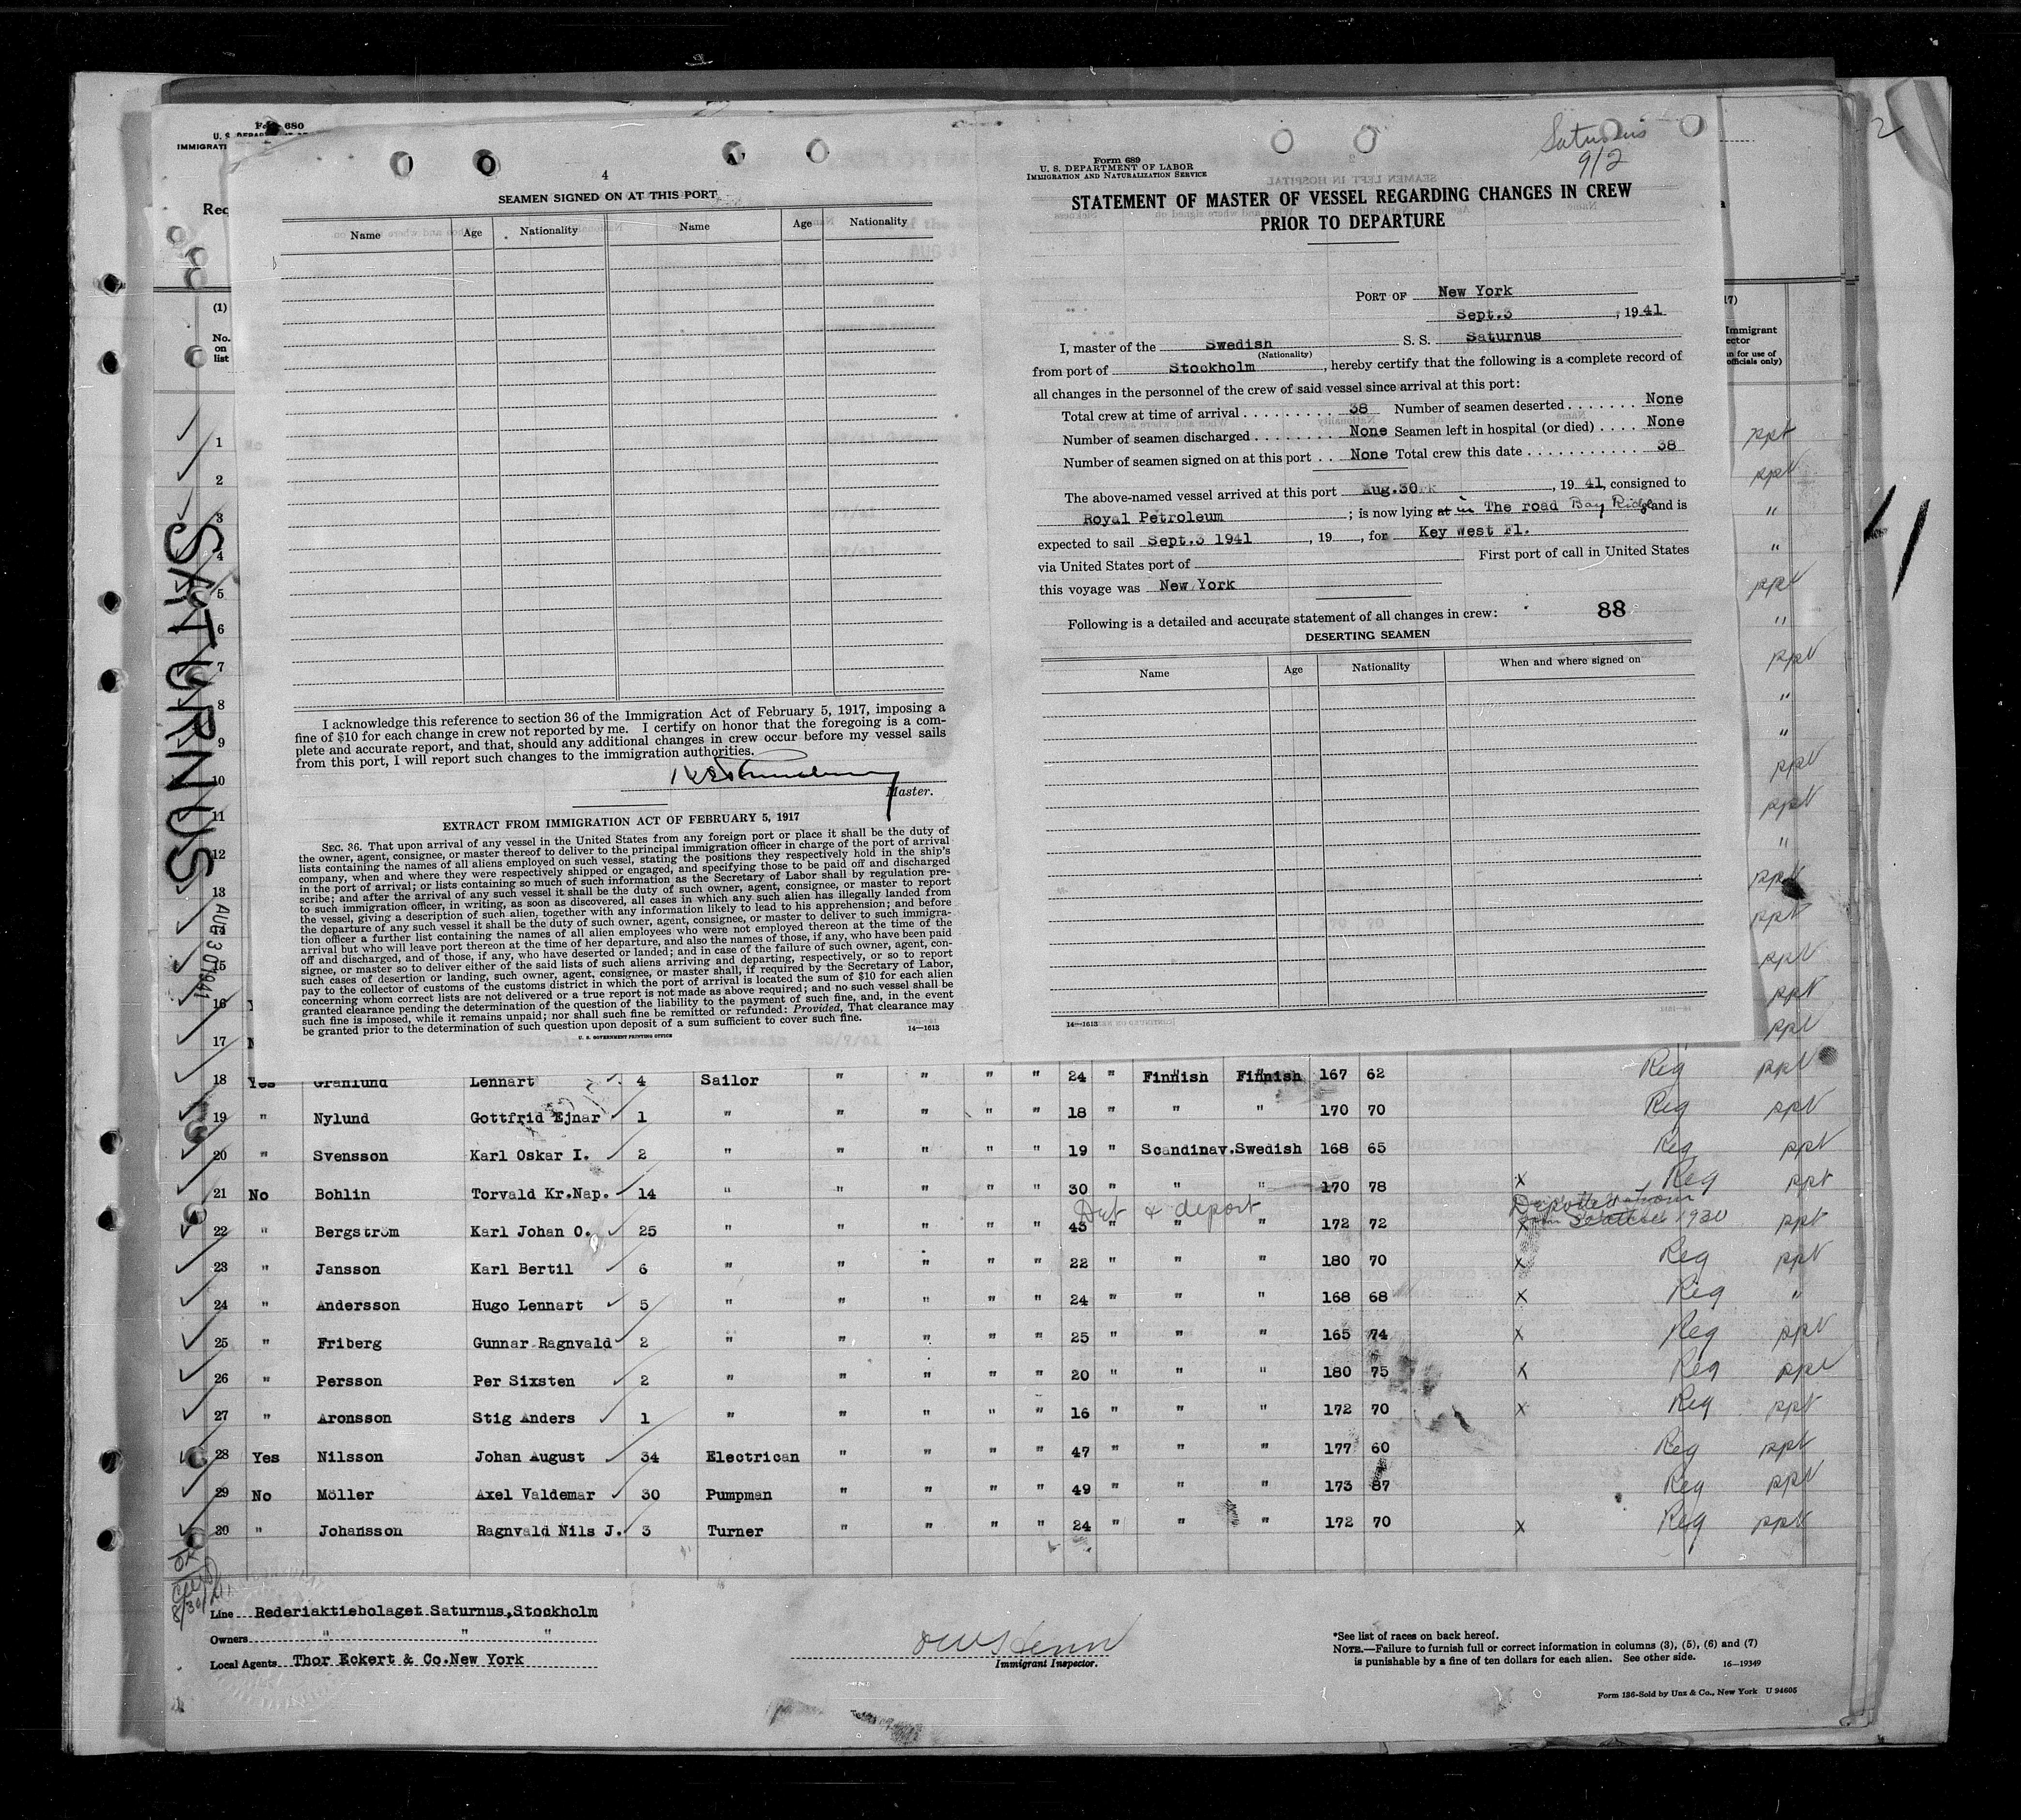 Form 680
U. S. DEPAR
IMMIGRATI
Rec
(1)
No.
on
list
SATURNUS
AUG 30 1941
4
SEAMEN SIGNED ON AT THIS PORT
Name Age Nationality Name Age Nationality
I acknowledge this reference to section 36 of the Immigration Act of February 5, 1917, imposing a
fine of $10 for each change in crew not reported by me. I certify on honor that the foregoing is a com-
plete and accurate report, and that, should any additional changes in crew occur before my vessel sails
from this port, I will report such changes to the immigration authorities.
Master.
EXTRACT FROM IMMIGRATION ACT OF FEBRUARY 5, 1917
SEC. 36. That upon arrival of any vessel in the United States from any foreign port or place it shall be the duty of
the owner, agent, consignee, or master thereof to deliver to the principal immigration officer in charge of the port of arrival
lists containing the names of all aliens employed on such vessel, stating the positions they respectively hold in the ship's
company, when and where they were respectively shipped or engaged, and specifying those to be paid off and discharged
in the port of arrival; or lists containing so much of such information as the Secretary of Labor shall by regulation pre-
scribe; and after the arrival of any such vessel it shall be the duty of such owner, agent, consignee, or master to report
to such immigration officer, in writing, as soon as discovered, all cases in which any such alien has illegally landed from
the vessel, giving a description of such alien, together with any information likely to lead to his apprehension; and before
the departure of any such vessel it shall be the duty of such owner, agent, consignee, or master to deliver to such immigra-
tion officer a further list containing the names of all alien employees who were not employed thereon at the time of the
arrival but who will leave port thereon at the time of her departure, and also the names of those, if any, who have been paid
off and discharged, and of those, if any, who have deserted or landed; and in case of the failure of such owner, agent, con-
signee, or master so to deliver either of the said lists of such aliens arriving and departing, respectively, or so to report
such cases of desertion or landing, such owner, agent, consignee, or master shall, if required by the Secretary of Labor,
pay to the collector of customs of the customs district in which the port of arrival is located the sum of $10 for each alien
concerning whom correct lists are not delivered or a true report is not made as above required; and no such vessel shall be
granted clearance pending the determination of the question of the liability to the payment of such fine, and, in the event
such fine is imposed, while it remains unpaid; nor shall such fine be remitted or refunded: Provided, That clearance may
be granted prior to the determination of such question upon deposit of a sum sufficient to cover such fine.
14—1613
U. S. GOVERNMENT PRINTING OFFICE
Saturnus
9/2
Form 689
U. S. DEPARTMENT OF LABOR
IMMIGRATION AND NATURALIZATION SERVICE
STATEMENT OF MASTER OF VESSEL REGARDING CHANGES IN CREW
PRIOR TO DEPARTURE
PORT OF New York
Sept.3, 1941
I, master of the Swedish S. S. Saturnus
(Nationality)
from port of Stockholm, hereby certify that the following is a complete record of
all changes in the personnel of the crew of said vessel since arrival at this port:
Total crew at time of arrival 38 Number of seamen deserted None
Number of seamen discharged None Seamen left in hospital (or died) None
Number of seamen signed on at this port None Total crew this date 38
The above-named vessel arrived at this port Aug.30, 1941, consigned to
Royal Petroleum; is now lying at in The road Bay Ridge and is
expected to sail Sept.3 1941, 19 , for Key West Fl.
via United States port of First port of call in United States
this voyage was New York
Following is a detailed and accurate statement of all changes in crew: 88
DESERTING SEAMEN
Name Age Nationality When and where signed on
14—1613
17)
Immigrant
ector
n for use of
officials only)
2
1 ppt
2 ppt
3 "
4 "
5 ppt
6 "
7 ppt
8 "
9 "
10 ppt
11 ppt
12 "
13 ppt
14 ppt
15 ppt
16 ppt
17 ppt
18 Yes Granlund Lennart 4 Sailor " " " " 24 " Finnish Finnish 167 62 Reg ppt
19 " Nylund Gottfrid Ejnar 1 " " " " " 18 " " " 170 70 Reg ppt
20 " Svensson Karl Oskar I. 2 " " " " " 19 " Scandinav. Swedish 168 65 Reg ppt
21 No Bohlin Torvald Kr.Nap. 14 " " " " " 30 " " " 170 78 x Reg ppt
Det & deport Deported from
22 " Bergström Karl Johan O. 25 " " " " " 43 " " " 172 72 x from Seattle 1930 ppt
23 " Jansson Karl Bertil 6 " " " " " 22 " " " 180 70 x Reg ppt
24 " Andersson Hugo Lennart 5 " " " " " 24 " " " 168 68 x Reg "
25 " Friberg Gunnar Ragnvald 2 " " " " " 25 " " " 165 74 x Reg ppt
26 " Persson Per Sixsten 2 " " " " " 20 " " " 180 75 x Reg ppt
27 " Aronsson Stig Anders 1 " " " " " 16 " " " 172 70 x Reg ppt
28 Yes Nilsson Johan August 34 Electrican " " " " 47 " " " 177 60 Reg ppt
29 No Möller Axel Valdemar 30 Pumpman " " " " 49 " " " 173 87 Reg ppt
30 " Johansson Ragnvald Nils J. 3 Turner " " " " 24 " " " 172 70 x Reg ppt
8/30/41
Line Rederiaktiebolaget Saturnus, Stockholm
Owners " " "
Local Agents Thor Eckert & Co. New York
Immigrant Inspector.
*See list of races on back hereof.
NOTE.—Failure to furnish full or correct information in columns (3), (5), (6) and (7)
is punishable by a fine of ten dollars for each alien. See other side.
16—19349
Form 136-Sold by Unz & Co., New York U 94605